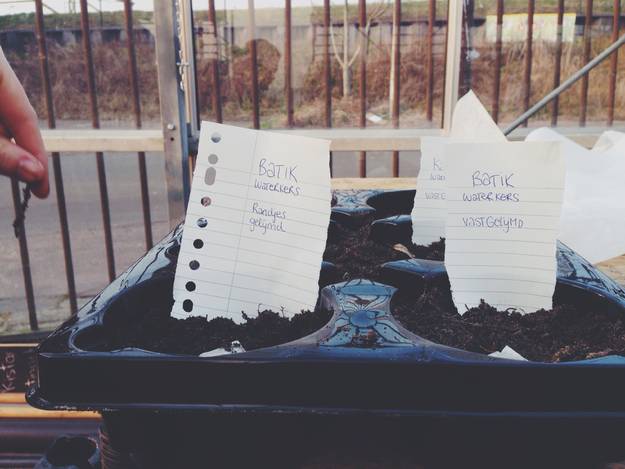 BATIK
WATERKERS
Randjes
gelijmd
BATIK
WATERKERS
VASTGELIJMD